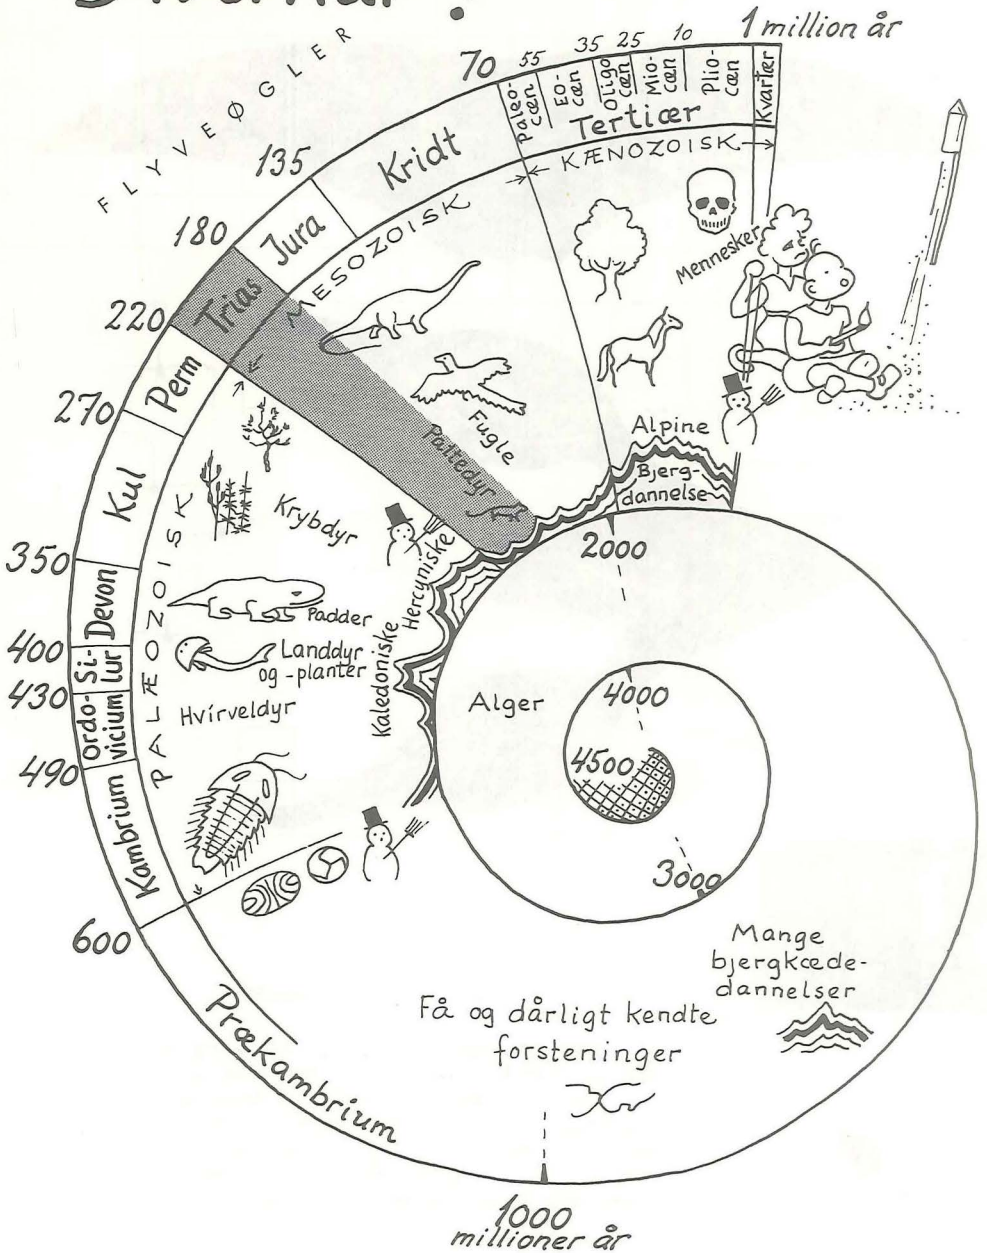 1 million år
70
55
35
25
10
Paleo-
cæn
Eo-
cæn
Oligo
cæn
Mio-
cæn
Plio-
cæn
Kvartær
Tertiær
KÆNOZOISK
FLYVEØGLER
135
Kridt
180
Jura
MESOZOISK
Trias
220
Perm
270
Kul
350
Devon
400
Si-
lur
430
Ordo-
vicium
490
Kambrium
600
PALÆOZOISK
Prækambrium
Mennesker
Fugle
Pattedyr
Krybdyr
Padder
Landdyr
og -planter
Hvirveldyr
Alpine
Bjerg-
dannelse
Hercyniske
Kaledoniske
2000
Alger
4000
4500
3000
Mange
bjergkæde-
dannelser
Få og dårligt kendte
forsteninger
1000
millioner år